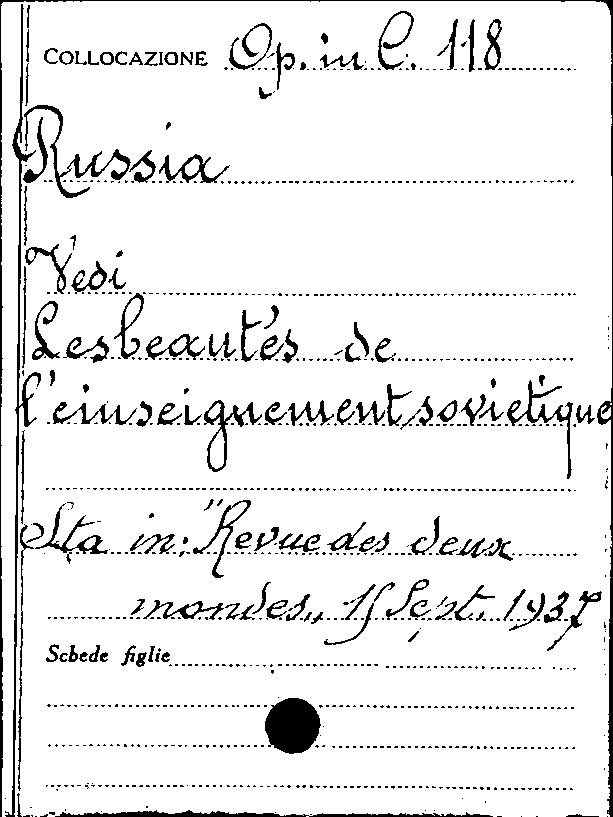 COLLOCAZIONE Op. in C. 118
Russia
Vedi
Les beautés de
l'einseignement sovietique
Sta in: "Revue des deux
mondes,, 15 Sept. 1937
Schede figlie